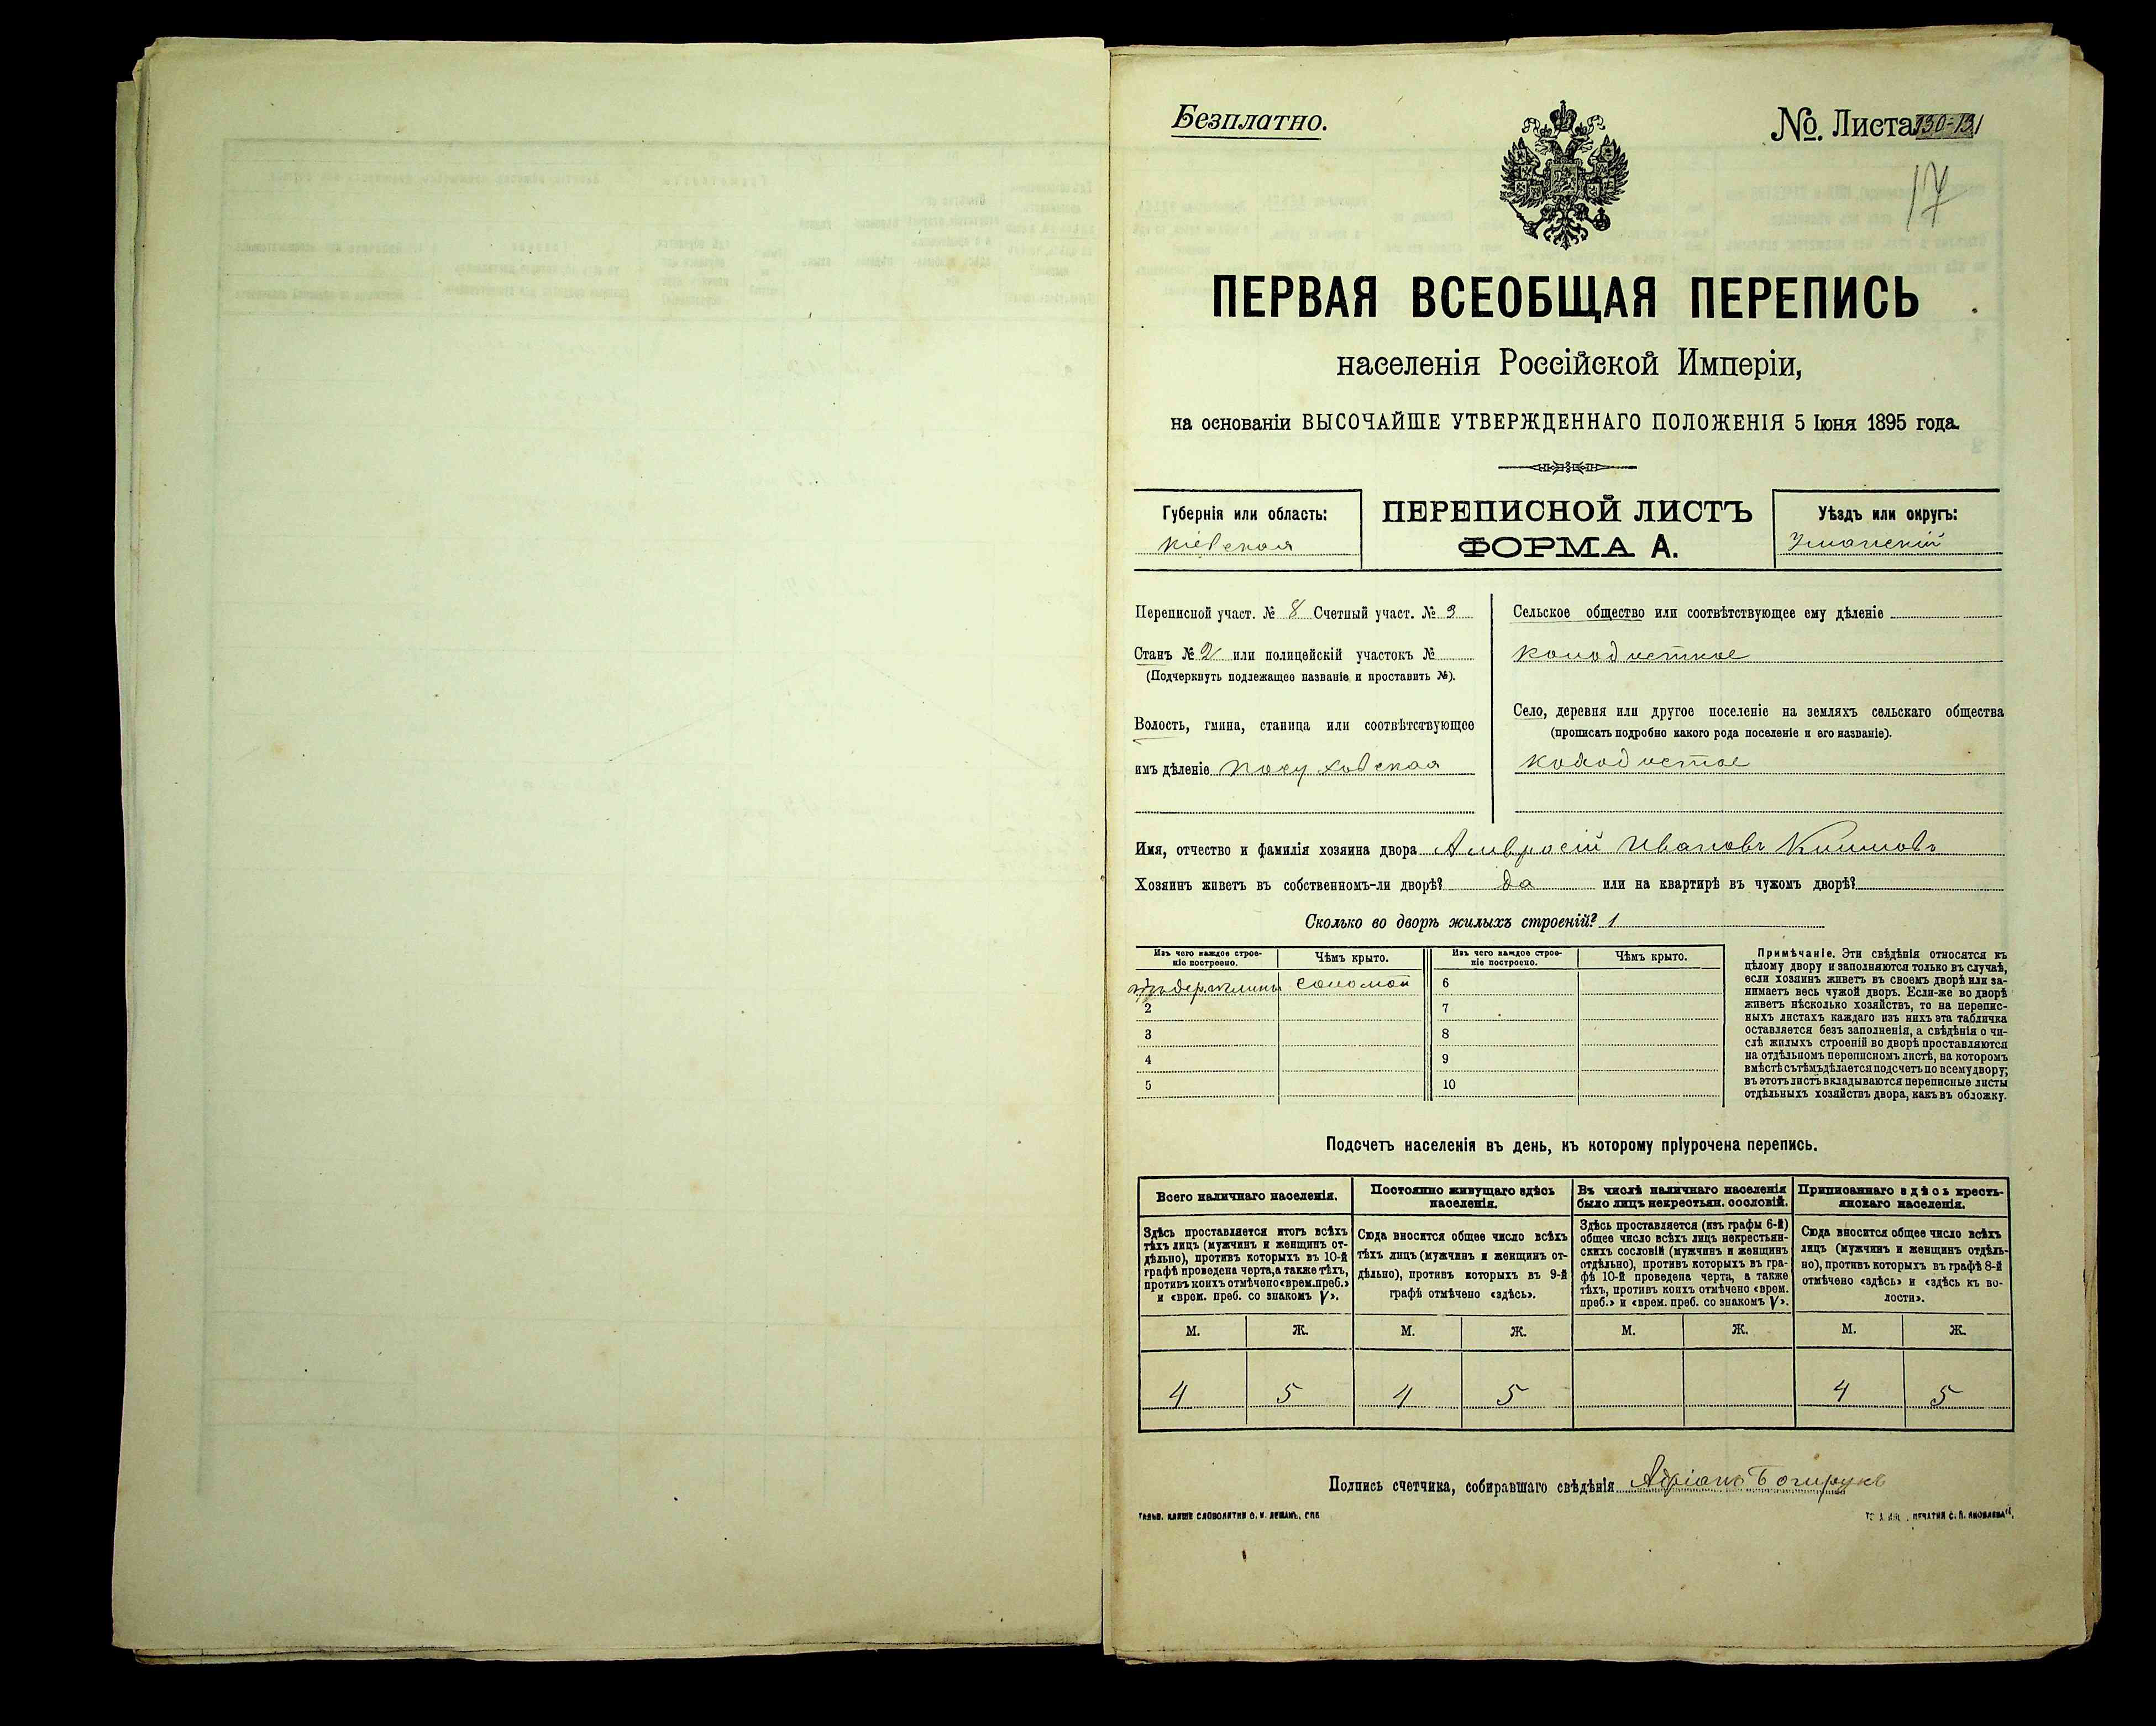 Безплатно.
№ Листа 130-131
17
ПЕРВАЯ ВСЕОБЩАЯ ПЕРЕПИСЬ
населенія Россійской Имперіи,
на основаніи ВЫСОЧАЙШЕ УТВЕРЖДЕННАГО ПОЛОЖЕНІЯ 5 Іюня 1895 года.
Губернія или область:
Кіевская
ПЕРЕПИСНОЙ ЛИСТЪ
ФОРМА А.
Уѣздъ или округъ:
Уманскій
Переписной участ. № 8 Счетный участ. № 3
Станъ № 2 или полицейскій участокъ №
(Подчеркнуть подлежащее названіе и проставить №).
Волость, гмина, станица или соотвѣтствующее
имъ дѣленіе
Сельское общество или соотвѣтствующее ему дѣленіе
Колодистое
Село, деревня или другое поселеніе на земляхъ сельскаго общества
(прописать подробно какого рода поселеніе и его названіе).
Колодистое
Имя, отчество и фамилія хозяина двора Амвросій Ивановъ
Хозяинъ живетъ въ собственномъ-ли дворѣ? да или на квартирѣ въ чужомъ дворѣ?
Сколько во дворѣ жилыхъ строеній? 1
Изъ чего каждое строе-
ніе построено.
Чѣмъ крыто.
Изъ чего каждое строе-
ніе построено.
Чѣмъ крыто.
1 соломой 6
2 7
3 8
4 9
5 10
Примѣчаніе. Эти свѣдѣнія относятся къ
цѣлому двору и заполняются только въ случаѣ,
если хозяинъ живетъ въ своемъ дворѣ или за-
нимаетъ весь чужой дворъ. Если-же во дворѣ
живетъ нѣсколько хозяйствъ, то на перепис-
ныхъ листахъ каждаго изъ нихъ эта табличка
оставляется безъ заполненія, а свѣдѣнія о чи-
слѣ жилыхъ строеній во дворѣ проставляются
на отдѣльномъ переписномъ листѣ, на которомъ
вмѣстѣ съ тѣмъ дѣлается подсчетъ по всему двору;
въ этотъ листъ вкладываются переписные листы
отдѣльныхъ хозяйствъ двора, какъ въ обложку.
Подсчетъ населенія въ день, къ которому пріурочена перепись.
Всего наличнаго населенія.
Постоянно живущаго здѣсь
населенія.
Въ числѣ наличнаго населенія
было лицъ некрестьян. сословій.
Приписаннаго здѣсь кресть-
янскаго населенія.
Здѣсь проставляется итогъ всѣхъ
тѣхъ лицъ (мужчинъ и женщинъ от-
дѣльно), противъ которыхъ въ 10-й
графѣ проведена черта, а также тѣхъ,
противъ коихъ отмѣчено «врем. преб.»
и «врем. преб. со знакомъ V».
Сюда вносится общее число всѣхъ
тѣхъ лицъ (мужчинъ и женщинъ от-
дѣльно), противъ которыхъ въ 9-й
графѣ отмѣчено «здѣсь».
Здѣсь проставляется (изъ графы 6-й)
общее число всѣхъ лицъ некрестьян-
скихъ сословій (мужчинъ и женщинъ
отдѣльно), противъ которыхъ въ гра-
фѣ 10-й проведена черта, а также
тѣхъ, противъ коихъ отмѣчено «врем.
преб.» и «врем. преб. со знакомъ V».
Сюда вносится общее число всѣхъ
лицъ (мужчинъ и женщинъ отдѣль-
но), противъ которыхъ въ графѣ 8-й
отмѣчено «здѣсь» и «здѣсь къ во-
лости».
М. Ж. М. Ж. М. Ж. М. Ж.
4 5 4 5 4 5
Подпись счетчика, собиравшаго свѣдѣнія Адріанъ